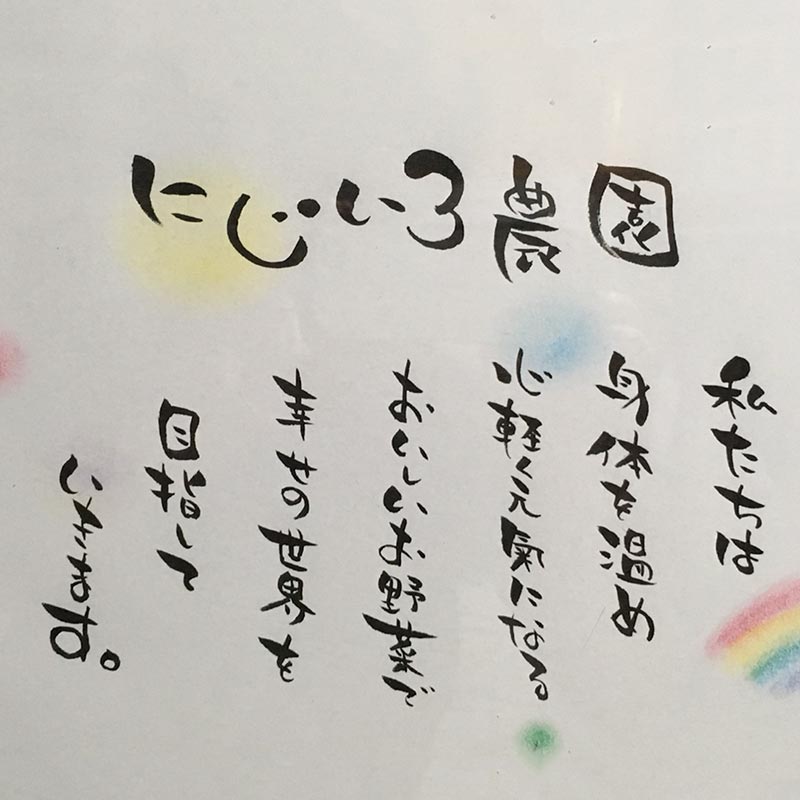 にじいろ農園
私たちは
身体を温め
心軽く元氣になる
おいしいお野菜で
幸せの世界を
目指して
いきます。